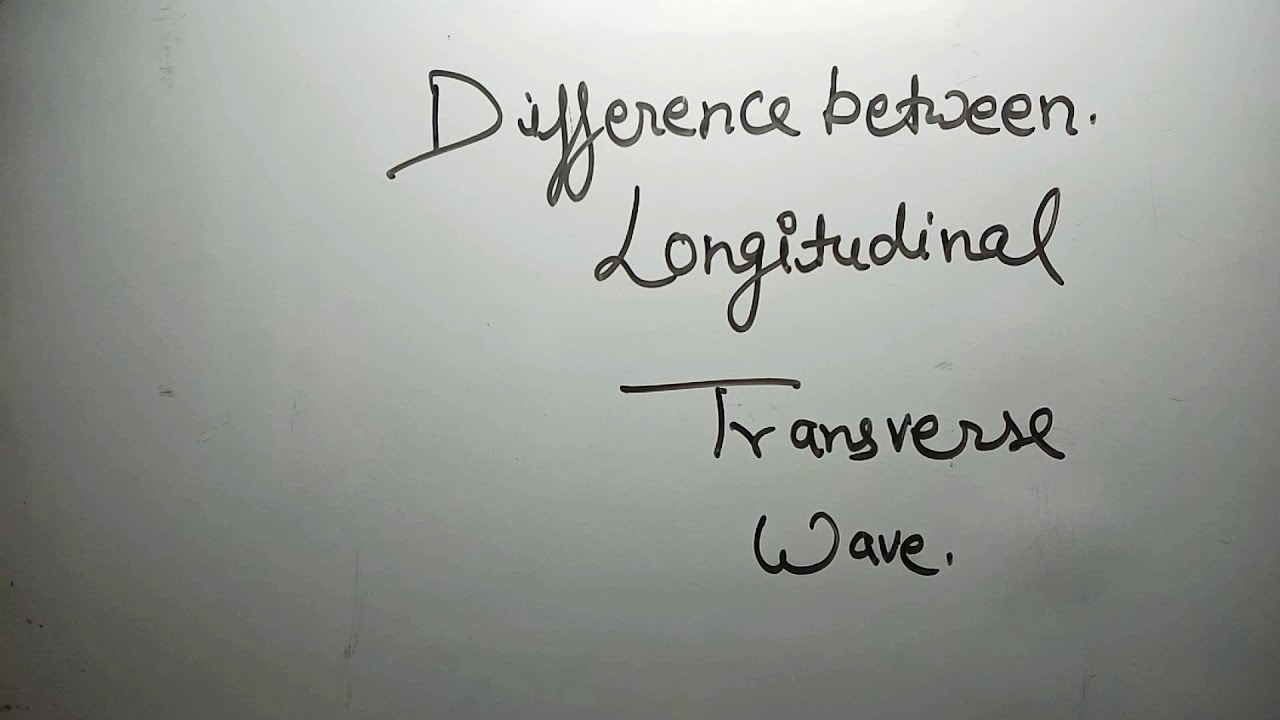 Difference between.
Longitudinal
Transverse
Wave.